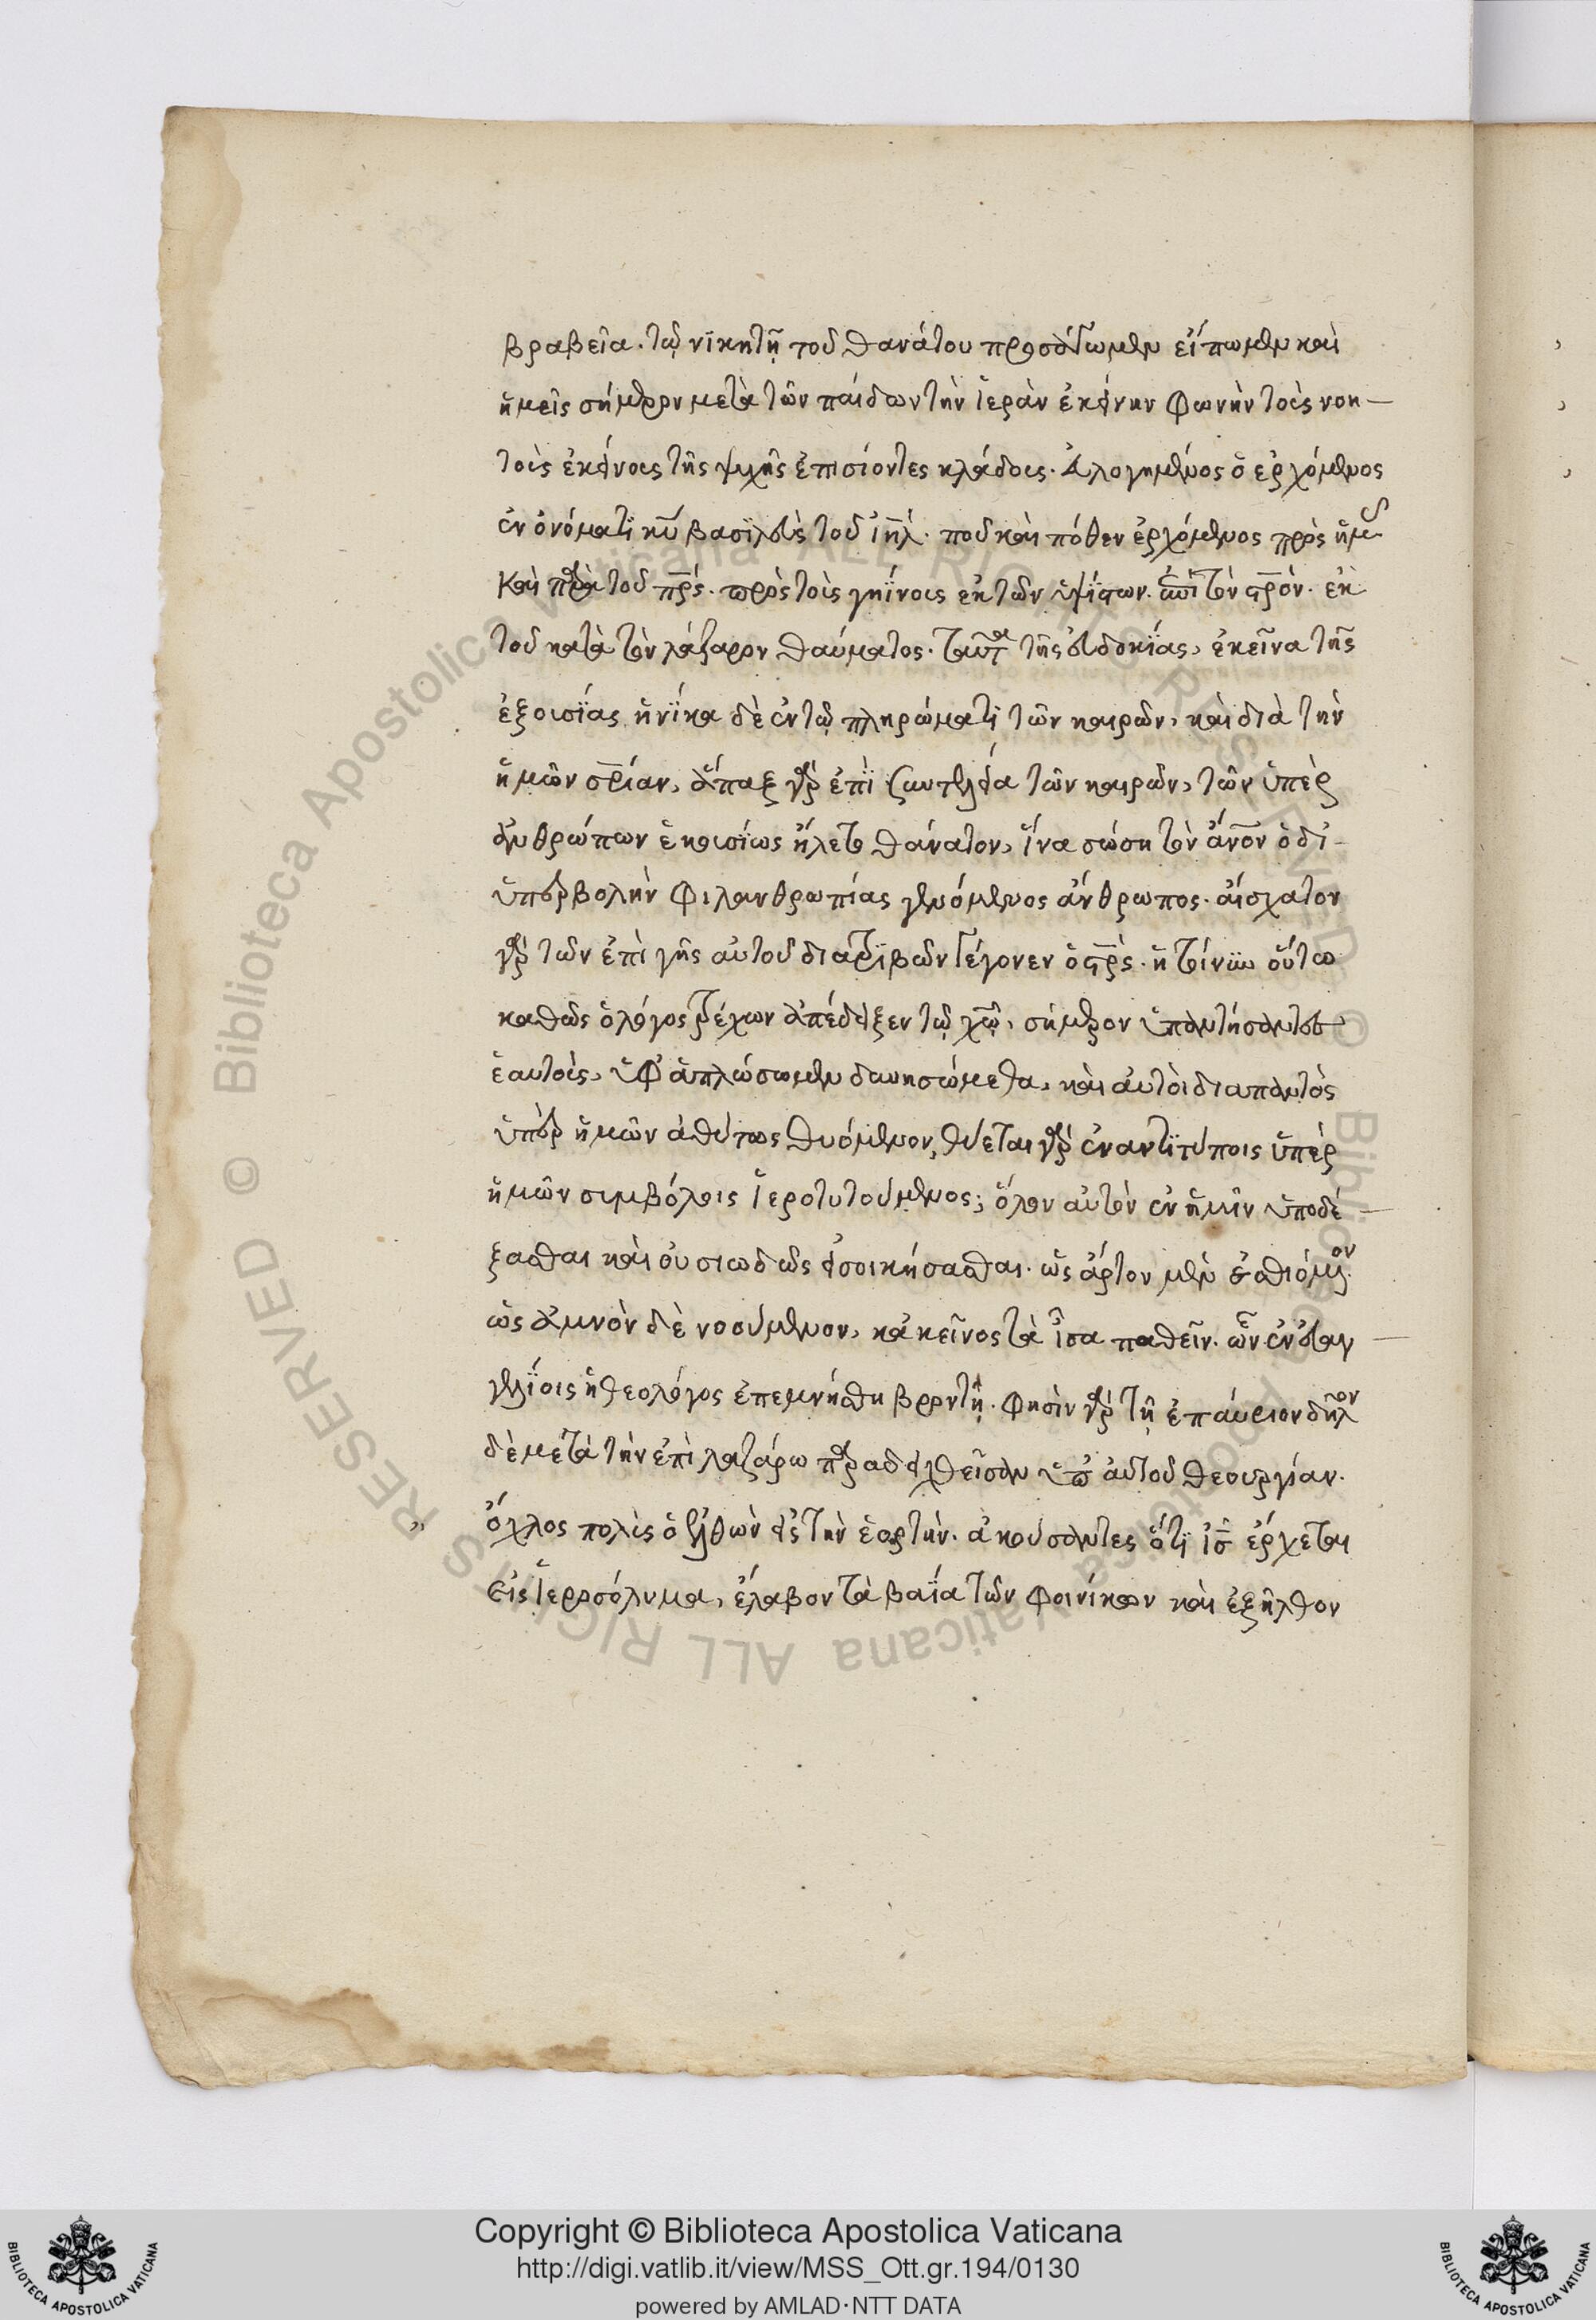 βραβεῖα. τῷ νικητῇ τοῦ θανάτου προσάξωμεν εἴπωμεν καὶ
ἡμεῖς σήμερον μετὰ τῶν παίδων τὴν ἱερὰν ἐκείνην φωνὴν τοῖς νοη
τοῖς ἐκείνοις τῆς ψυχῆς ἐπισείοντες κλάδοις. εὐλογημένος ὁ ἐρχόμενος
ἐν ὀνόματι κυ βασιλεὺς τοῦ ιηλ. ποῦ καὶ πόθεν ἐρχόμενος πρὸς ἡμᾶς
καὶ παρὰ τοῦ πρς. πρὸς τοὺς γηΐνους ἐκ τῶν ὑψίστων. ἐπὶ τὸν στρον. ἐκ
τοῦ κατὰ τὸν λάζαρον θαύματος. ταῦτα τῆς εὐδοκίας, ἐκεῖνα τῆς
ἐξουσίας ἡνίκα δὲ ἐν τῷ πληρώματι τῶν καιρῶν, καὶ διὰ τὴν
ἡμῶν σριαν, ἅπαξ γὰρ ἐπὶ συντελείᾳ τῶν καιρῶν, τῶν ὑπὲρ
ἀνθρώπων ἑκουσίως εἵλετο θάνατον, ἵνα σώσῃ τὸν ανον ὁ δι
ὑπερβολὴν φιλανθρωπίας γενόμενος ἄνθρωπος. αἴσχατον
γὰρ τῶν ἐπὶ γῆς αὐτοῦ διατριβῶν γέγονεν ὁ στρς. οὕτω
καθὼς ὁ λόγος τρέχων ἀπέδειξεν τῷ χω, σήμερον ὑπαντήσαντες
ἑαυτοὺς, ὑφαπλώσωμεν, καὶ αὐτοὶ διαπαντὸς
ὑπὲρ ἡμῶν ἀθύτως θυόμενον, θύεται γὰρ ἐν ἀντιτύποις ὑπὲρ
ἡμῶν συμβόλοις ἱερουτούμενος; ὅλον αὐτὸν ἐν ἡμῖν ὑποδέ
ξασθαι καὶ οὐσιωδῶς εἰσοικήσασθαι. ὡς ἄρτον μὲν ἐσθιόμενον
ὡς ἀμνὸν δὲ νοούμενον, κἀκεῖνος τὰ ἴσα παθεῖν. ὧν ἐν εὐαγ
γελίοις ἡ θεολόγος ἐπεμνήσθη βροντή. φησὶν γὰρ τῇ ἐπαύριον δῆλον
δὲ μετὰ τὴν ἐπὶ λαζάρω παραδειχθεῖσαν ὑπ αὐτοῦ θεουργίαν.
ὄχλος πολὺς ὁ ἐλθὼν εἰς τὴν ἑορτὴν. ἀκούσαντες ὅτι ις ἔρχεται
εἰς ἱεροσόλυμα, ἔλαβον τὰ βαΐα τῶν φοινίκων καὶ ἐξῆλθον
Copyright © Biblioteca Apostolica Vaticana
http://digi.vatlib.it/view/MSS_Ott.gr.194/0130
powered by AMLAD·NTT DATA